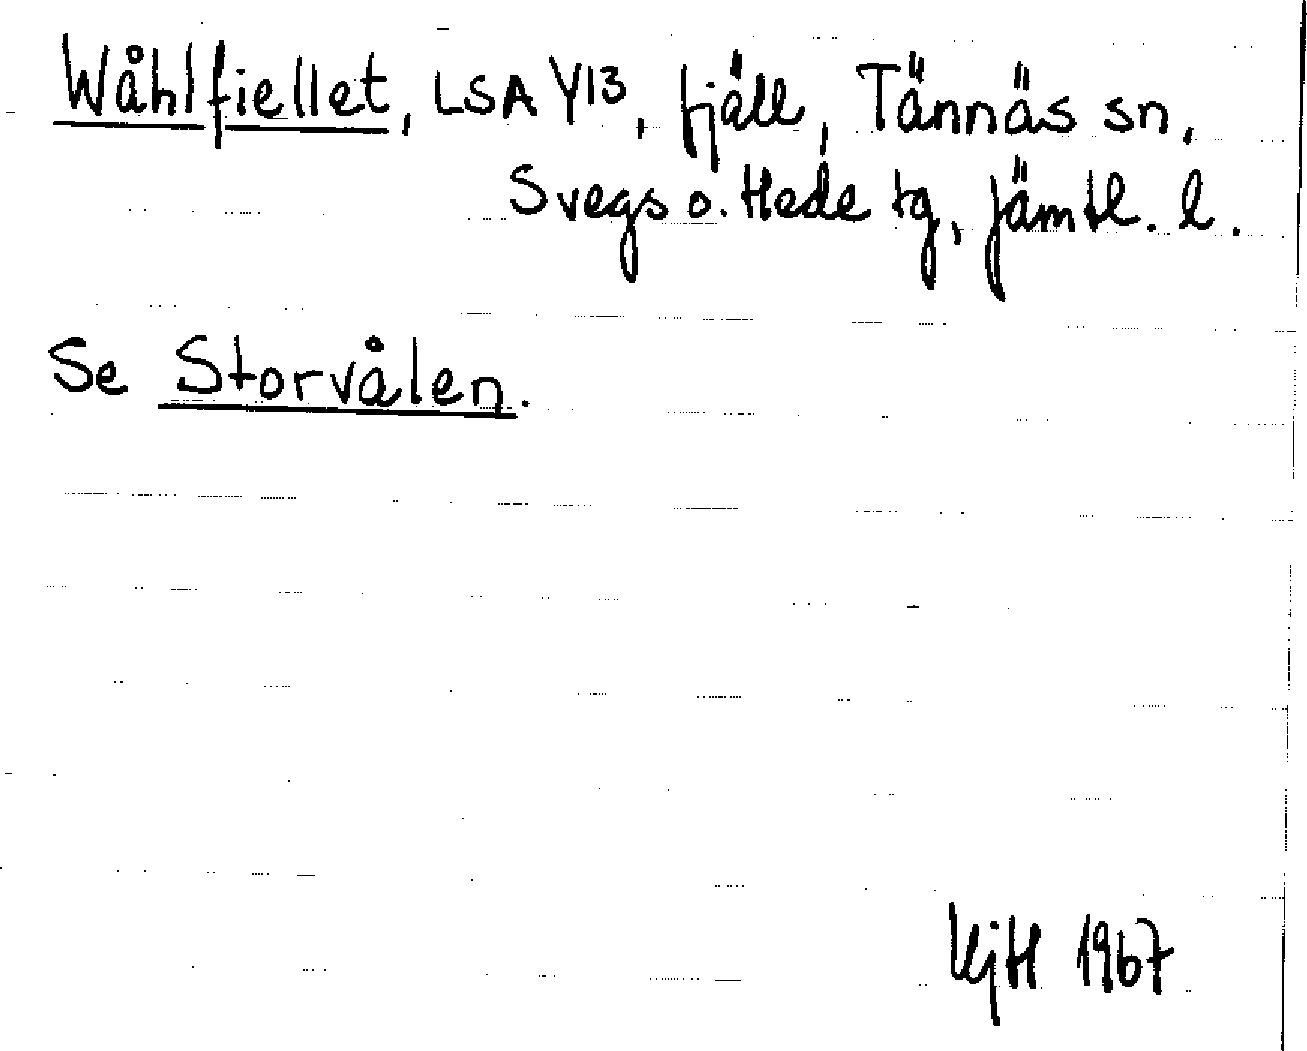 Wåhlfiellet, LSA Y13, fjäll, Tännäs sn,
Svegs o. Hede tg, Jämtl. l.
Se Storvålen.
KjH 1967